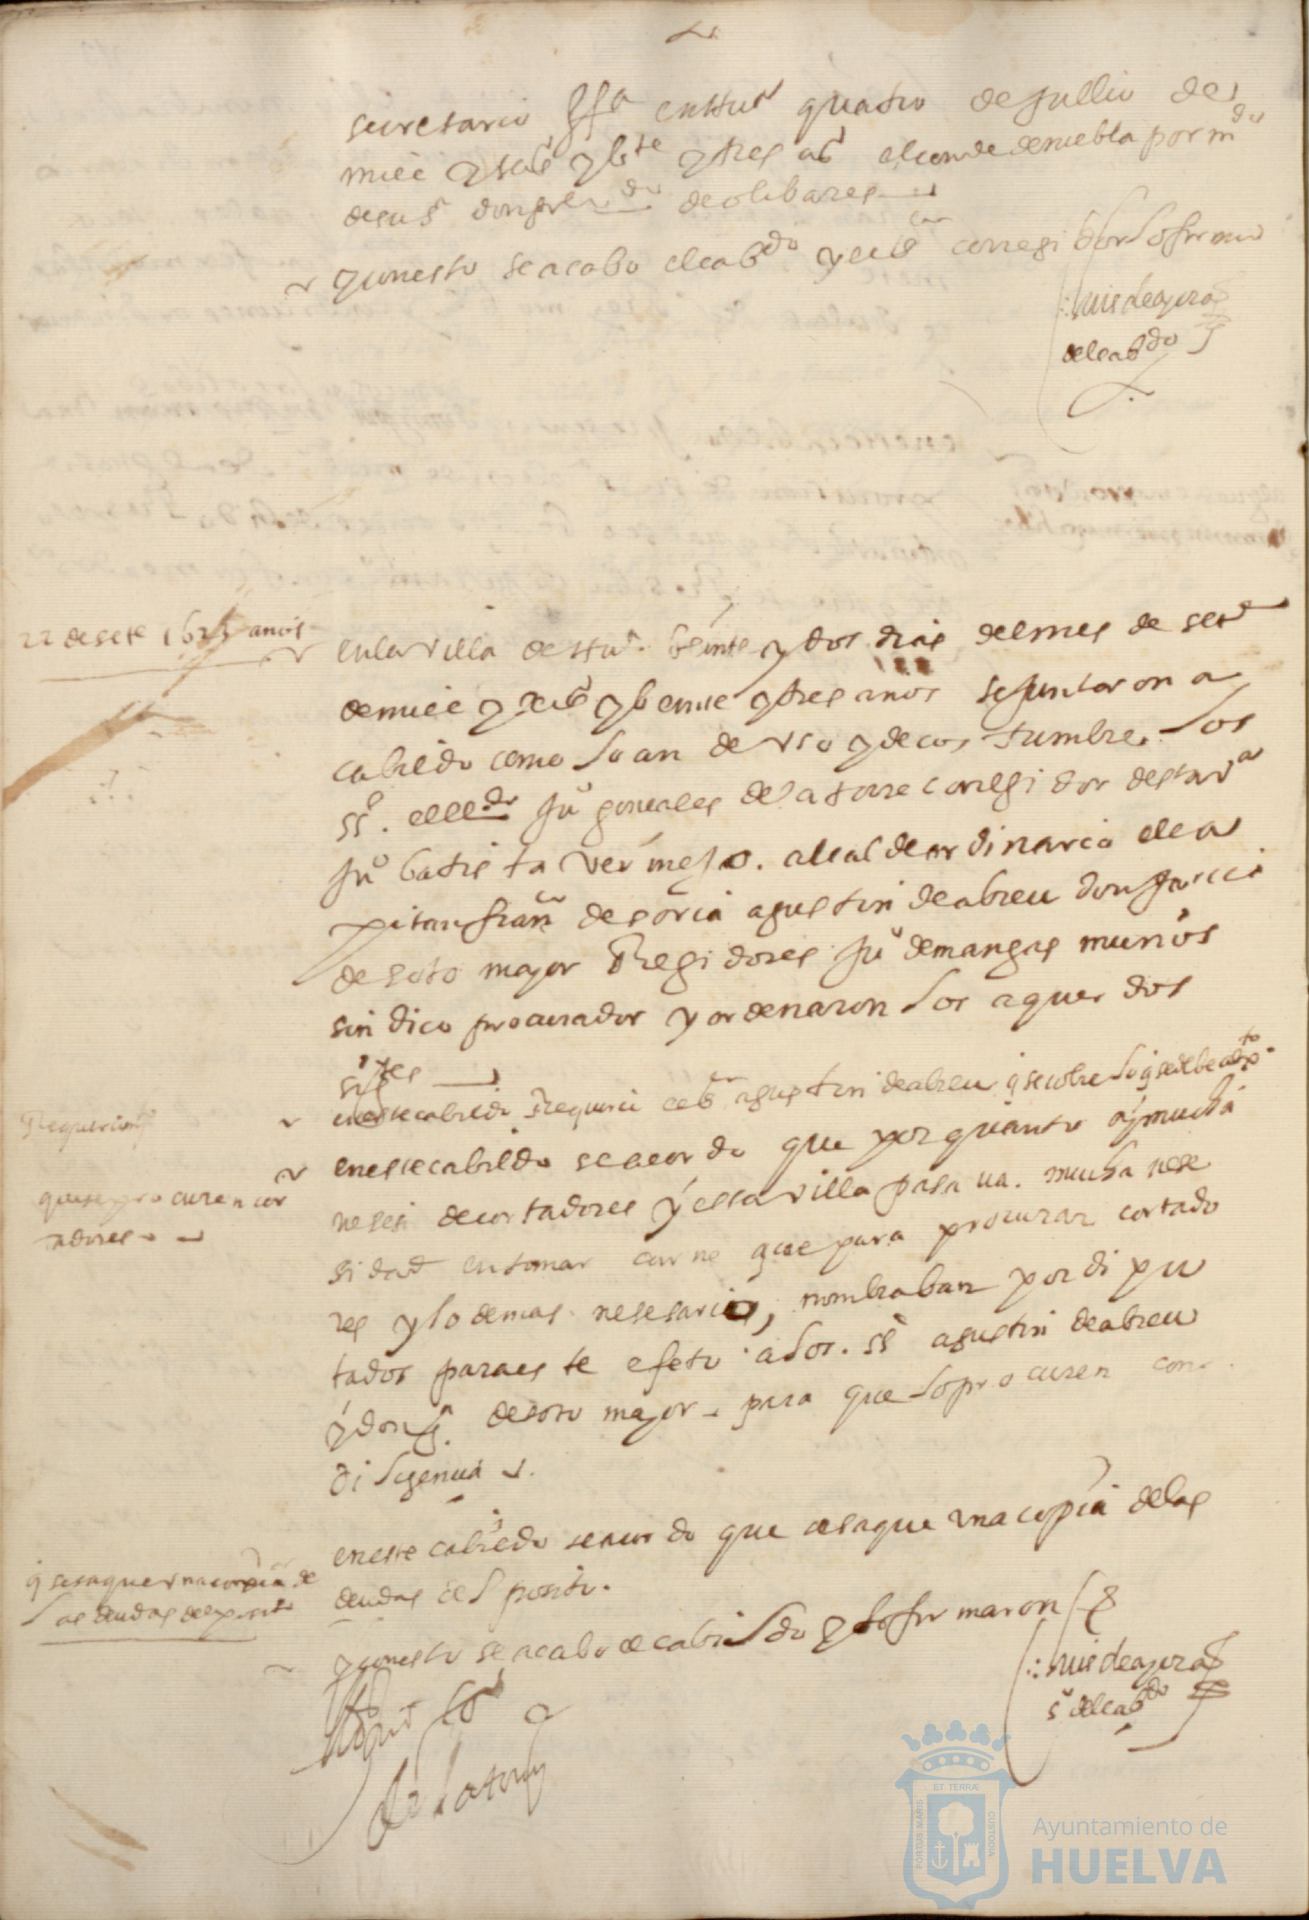 secretario ffa en Huel quatro de jullio de
mill y seisº y bte y tres aº el conde de niebla por mdo
de su sª don do de olibares
y con esto se acabo el cabdo y el sr corregidor lo firmo
luis de ayora
del cabdo
22 de sete 1623 anos
en la villa de Huª beinte y dos dias del mes de setº
de mill y seisº y beinte y tres anos se juntaron a
cabildo como lo an de uso y de costumbre los
ssº el lldo juº gonsales de la torre corregidor desta vª
juº batista vermejo alcalde ordinario el ca
pitan franco de soria agustin de abreu don garcia
de soto mayor Regidores juº de mangas munos
sindico procurador y ordenaron los aquerdos
sigtes
Requerimto
en este cabildo Requirio el sr agustin de abreu q se cobre lo q se debe al psto
que se procuren cor
tadores
en este cabildo se acordo que por quanto ay mucha
nesesi de cortadores y esta villa pasava mucha nese
sidad en tomar carne que para procurar cortado
res y lo demas nesesario, nombraban por dipu
tados para este efeto a los ss agustin de abreu
y don gª de soto mayor para que lo procuren con
diligencia
q se saque una copia de
las deudas del posito
en este cabildo se acordo que se saque una copia de las
deudas del posito
y con esto se acabo el cabildo y lo firmaron
luis de ayora
sº del cabdo
de la torre
ET TERRÆ
PORTUS MARIS
CUSTODIA
Ayuntamiento de
HUELVA